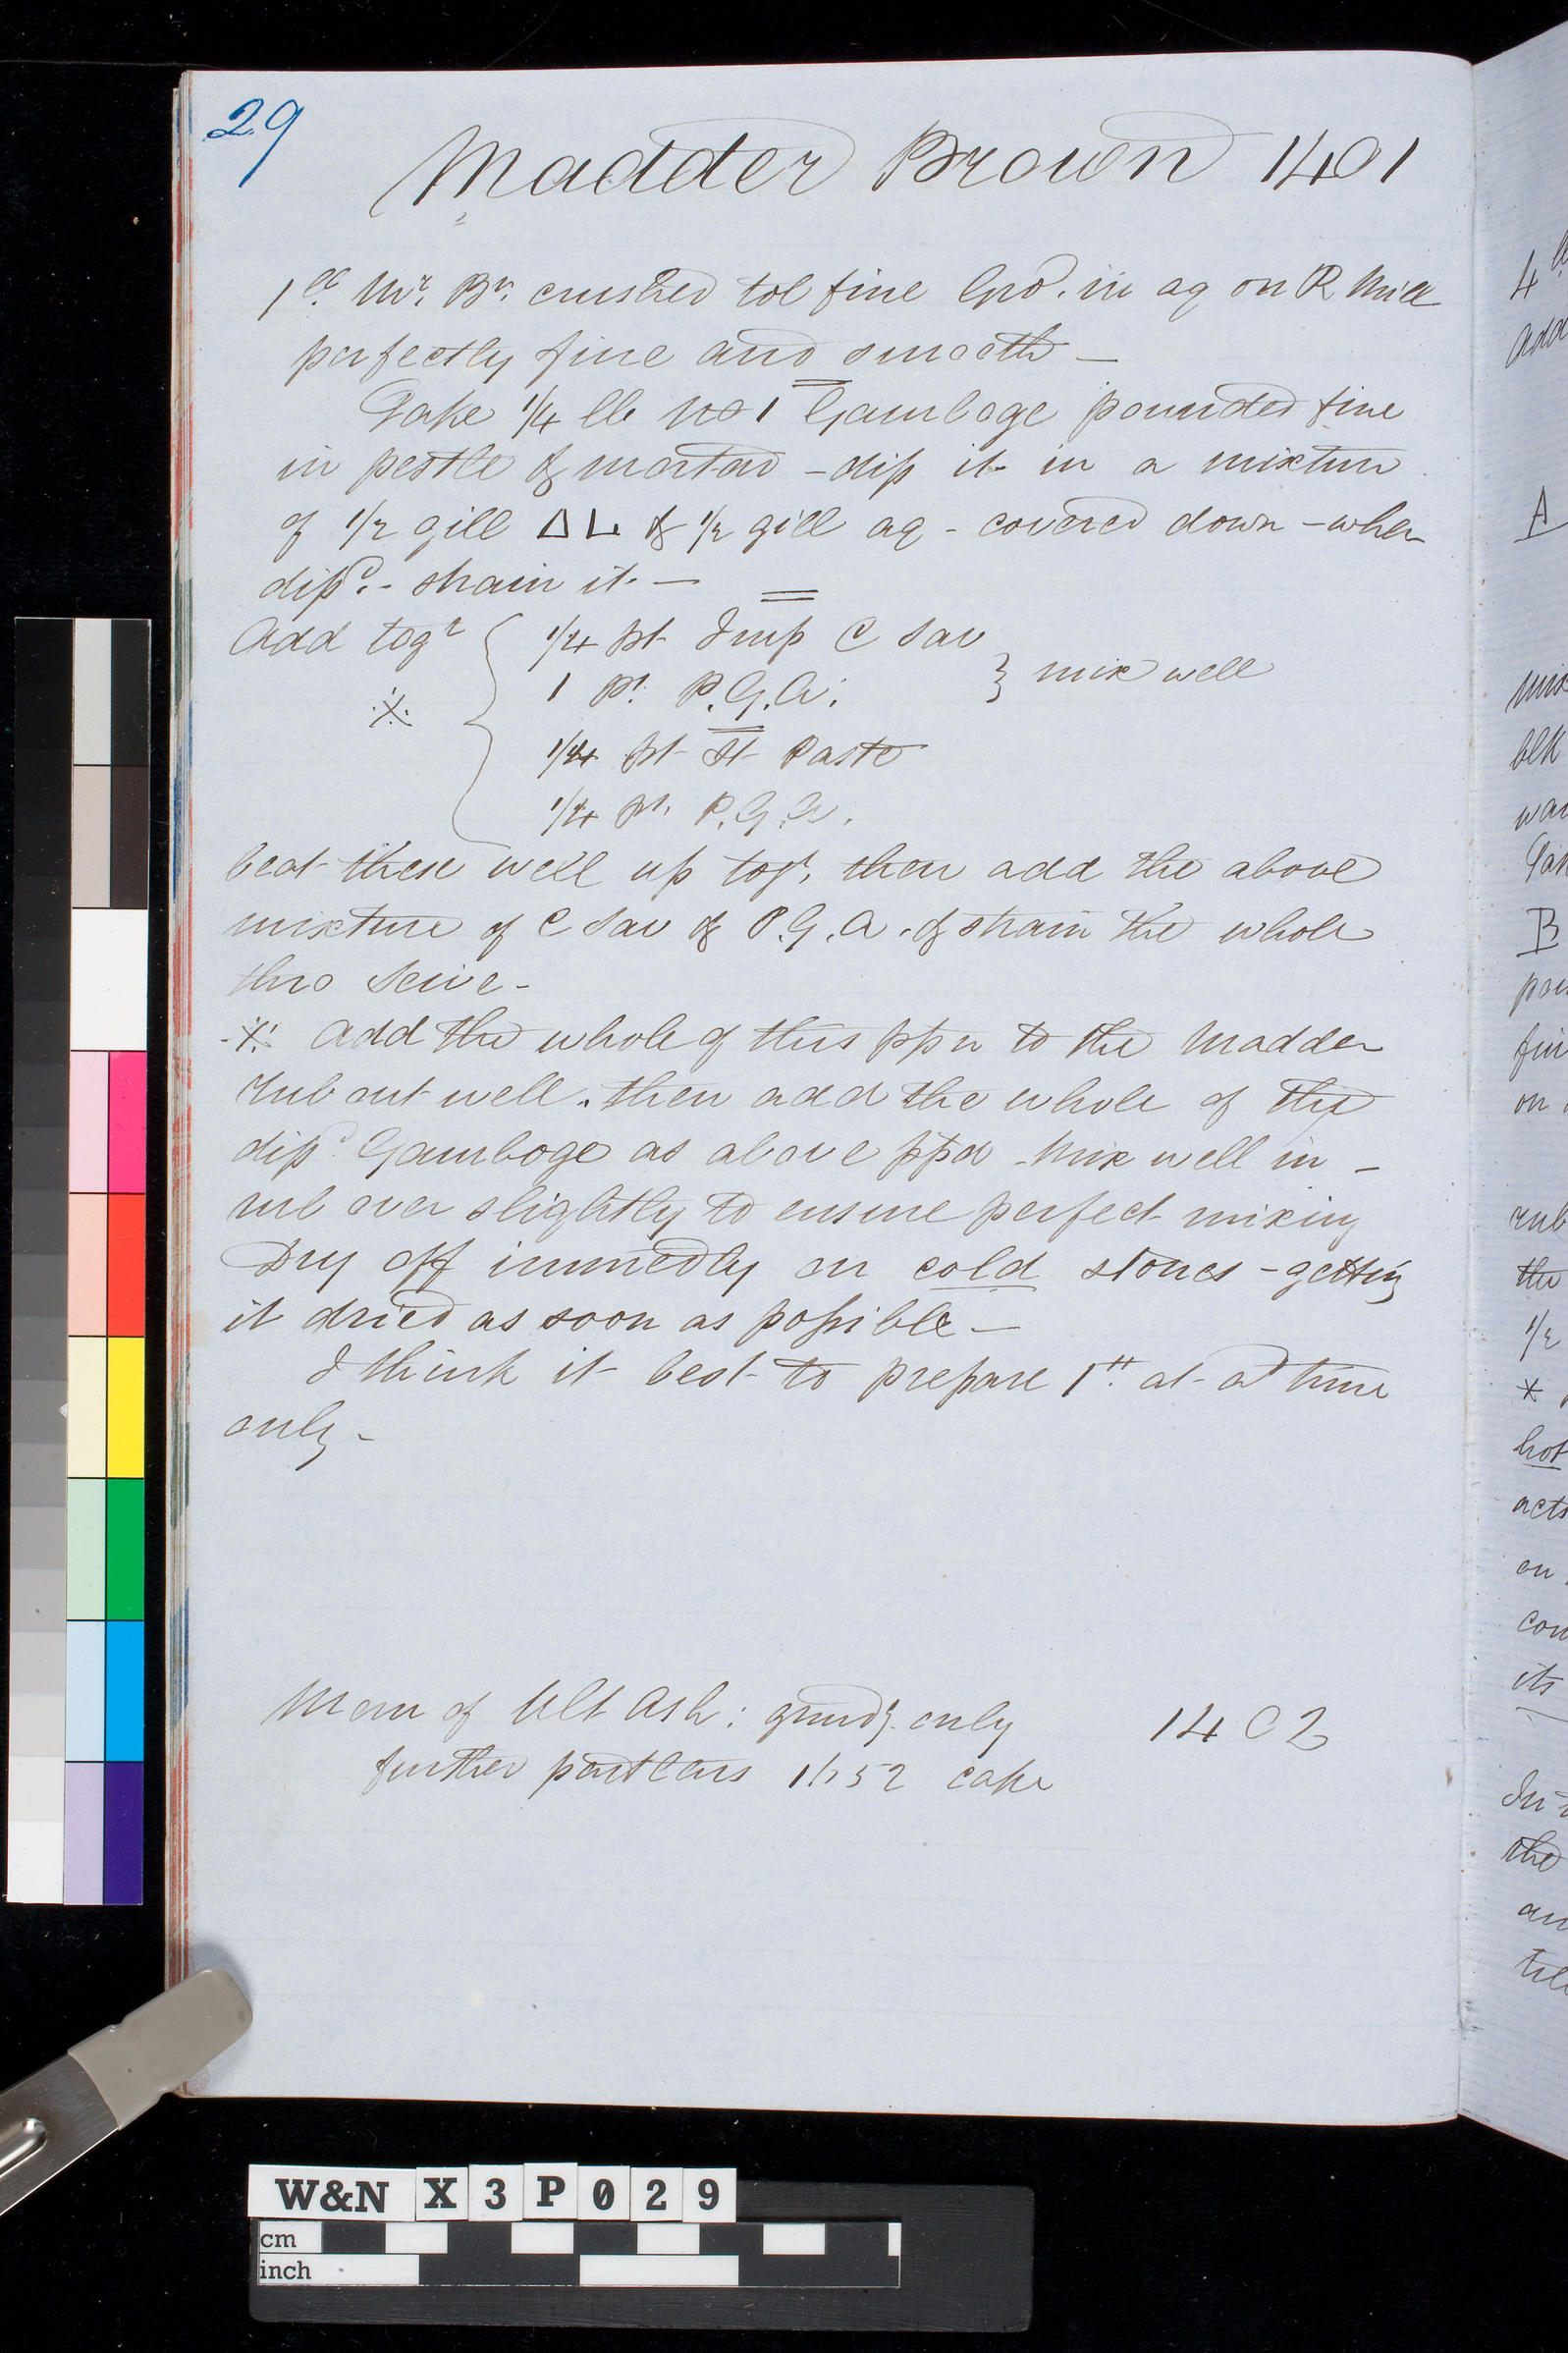 29
Madder Brown 1401
1 lb. Mr. Br. crushed tol fine Grd. in aq on R Mill
perfectly fine and smooth —
Take 1/4 lb No 1 Gamboge pounded fine
in pestle & mortar – diss it in a mixture
of 1/2 gill & 1/2 gill aq – covered down – when
dissd. – strain it. —
Add togr { 1/4 pt Imp C Sav
1 pt. P.G.A. } mix well
※
1/4 pt St Paste
1/4 pt. P.G.A.
beat these well up togr, then add the above
mixture of C Sav & P.G.A. & strain the whole
thro Seive –
※ Add the whole of this ppn to the Madder
rub out well. then add the whole of the
dissd Gamboge as above ppd – Mix well in –
rub over slightly to ensure perfect mixing
Dry off immedly on cold stones – getting
it dried as soon as possible —
I think it best to prepare 1 lb. at a time
only –
Mem of Ult Ash: grindg. only 1402
further partlars cake
4
add
A
mix
blk
B
fin
on
rub
the
1/2
*
hot
acts
on
con
its
In
the
W&N X 3 P 0 2 9
cm
inch